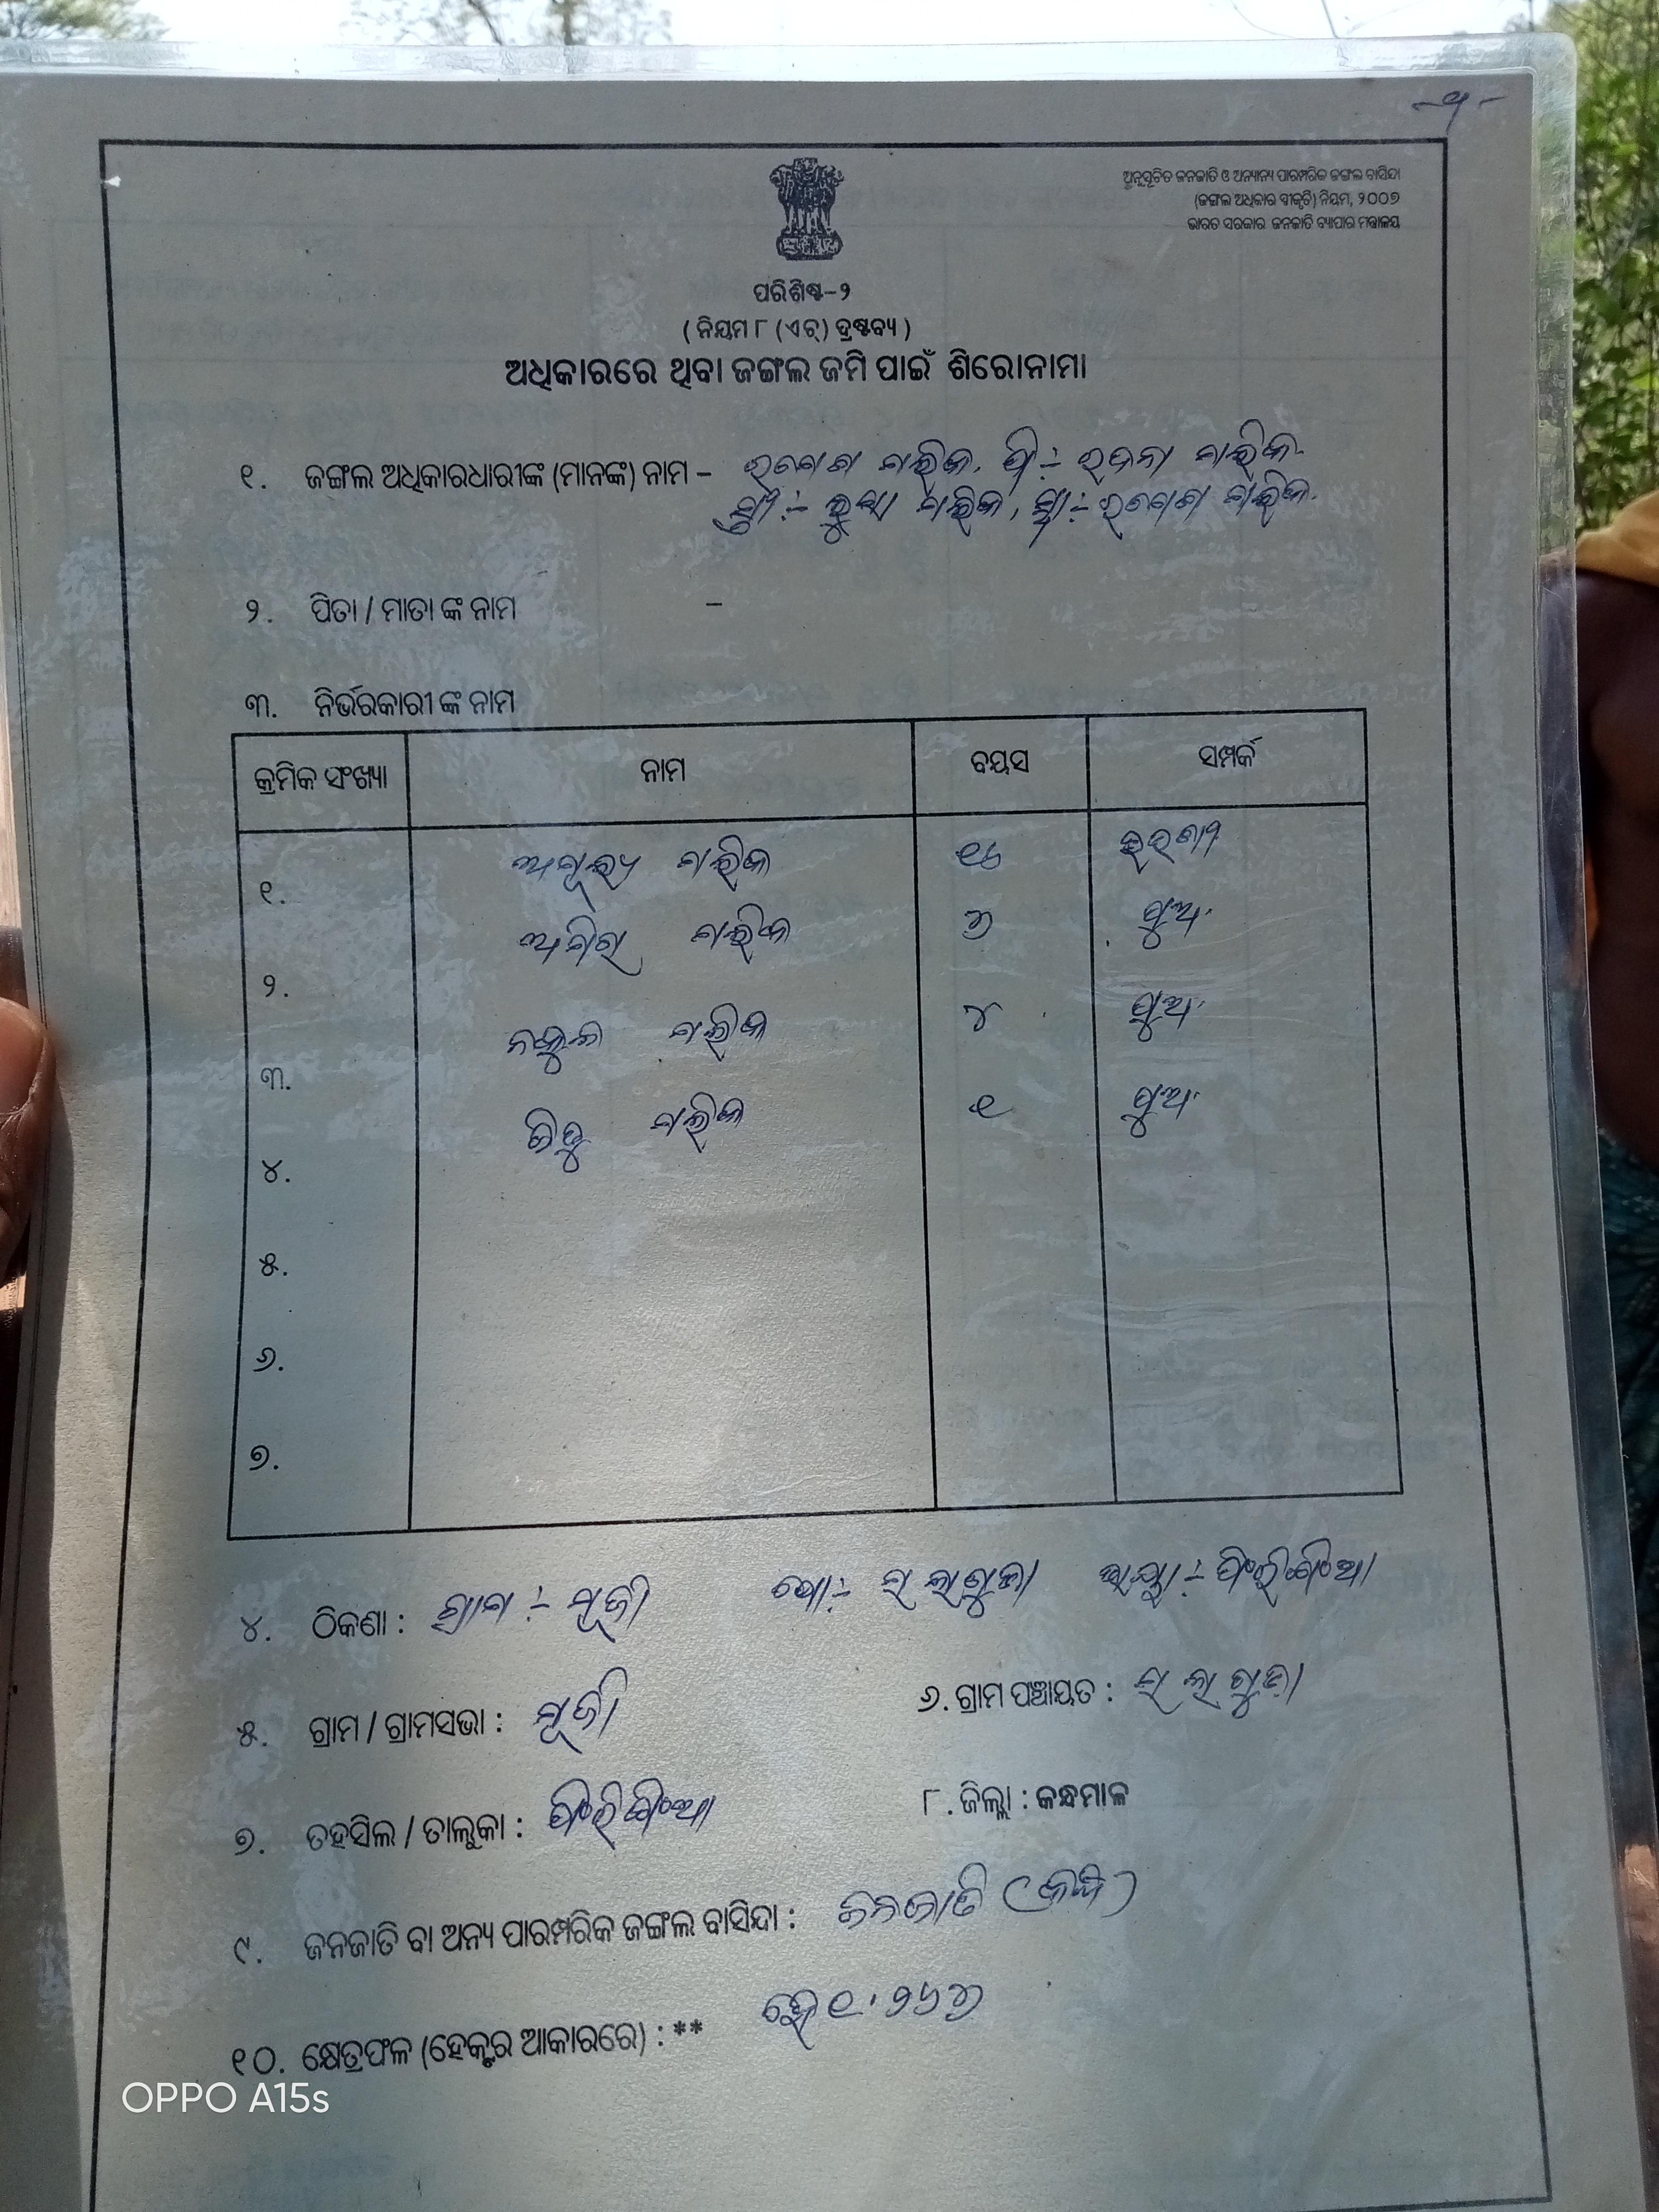 ଅନୁସୂଚିତ ଜନଜାତି ଓ ଅନ୍ୟାନ୍ୟ ପାରମ୍ପରିକ ଜଙ୍ଗଲ ବାସିନ୍ଦା
(ଜଙ୍ଗଲ ଅଧିକାର ସ୍ୱୀକୃତି) ନିୟମ, ୨୦୦୭
ଭାରତ ସରକାର ଜନଜାତି ବ୍ୟାପାର ମନ୍ତ୍ରାଳୟ
ପରିଶିଷ୍ଟ-୨
( ନିୟମ ୮ (ଏଚ୍) ଦ୍ରଷ୍ଟବ୍ୟ )
ଅଧିକାରରେ ଥିବା ଜଙ୍ଗଲ ଜମି ପାଇଁ ଶିରୋନାମା
୧. ଜଙ୍ଗଲ ଅଧିକାରଧାରୀଙ୍କ (ମାନଙ୍କ) ନାମ - ମଲିକ, ପି:- ମଲିକ
ସ୍ତ୍ରୀ:- ମଲିକ, ସ୍ୱା:- ମଲିକ
୨. ପିତା / ମାତା ଙ୍କ ନାମ -
୩. ନିର୍ଭରକାରୀ ଙ୍କ ନାମ
କ୍ରମିକ ସଂଖ୍ୟା ନାମ ବୟସ ସମ୍ପର୍କ
୧. ଅମୂଲ୍ୟ ମଲିକ ୧୬
୨. ମଲିକ ୬ ପୁଅ
୩. ନକୁଳ ମଲିକ ୪ ପୁଅ
୪. ମଲିକ ୧ ପୁଅ
୫.
୬.
୭.
୪. ଠିକଣା : ଗ୍ରାମ :- ପୋ:- ସଲାଗୁଡା ଫିରିଙ୍ଗିଆ
୫. ଗ୍ରାମ / ଗ୍ରାମସଭା : ୬. ଗ୍ରାମ ପଞ୍ଚାୟତ : ସଲାଗୁଡା
୭. ତହସିଲ / ତାଲୁକା : ଫିରିଙ୍ଗିଆ ୮. ଜିଲ୍ଲା : କନ୍ଧମାଳ
୯. ଜନଜାତି ବା ଅନ୍ୟ ପାରମ୍ପରିକ ଜଙ୍ଗଲ ବାସିନ୍ଦା : ଜନଜାତି (କନ୍ଧ)
୧୦. କ୍ଷେତ୍ରଫଳ (ହେକ୍ଟର ଆକାରରେ) : ** ହେ
OPPO A15s